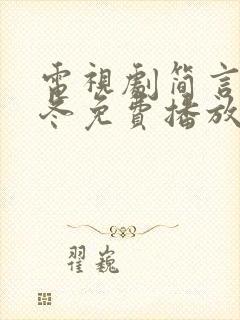 電視劇簡言
冬免費播放
翟巍